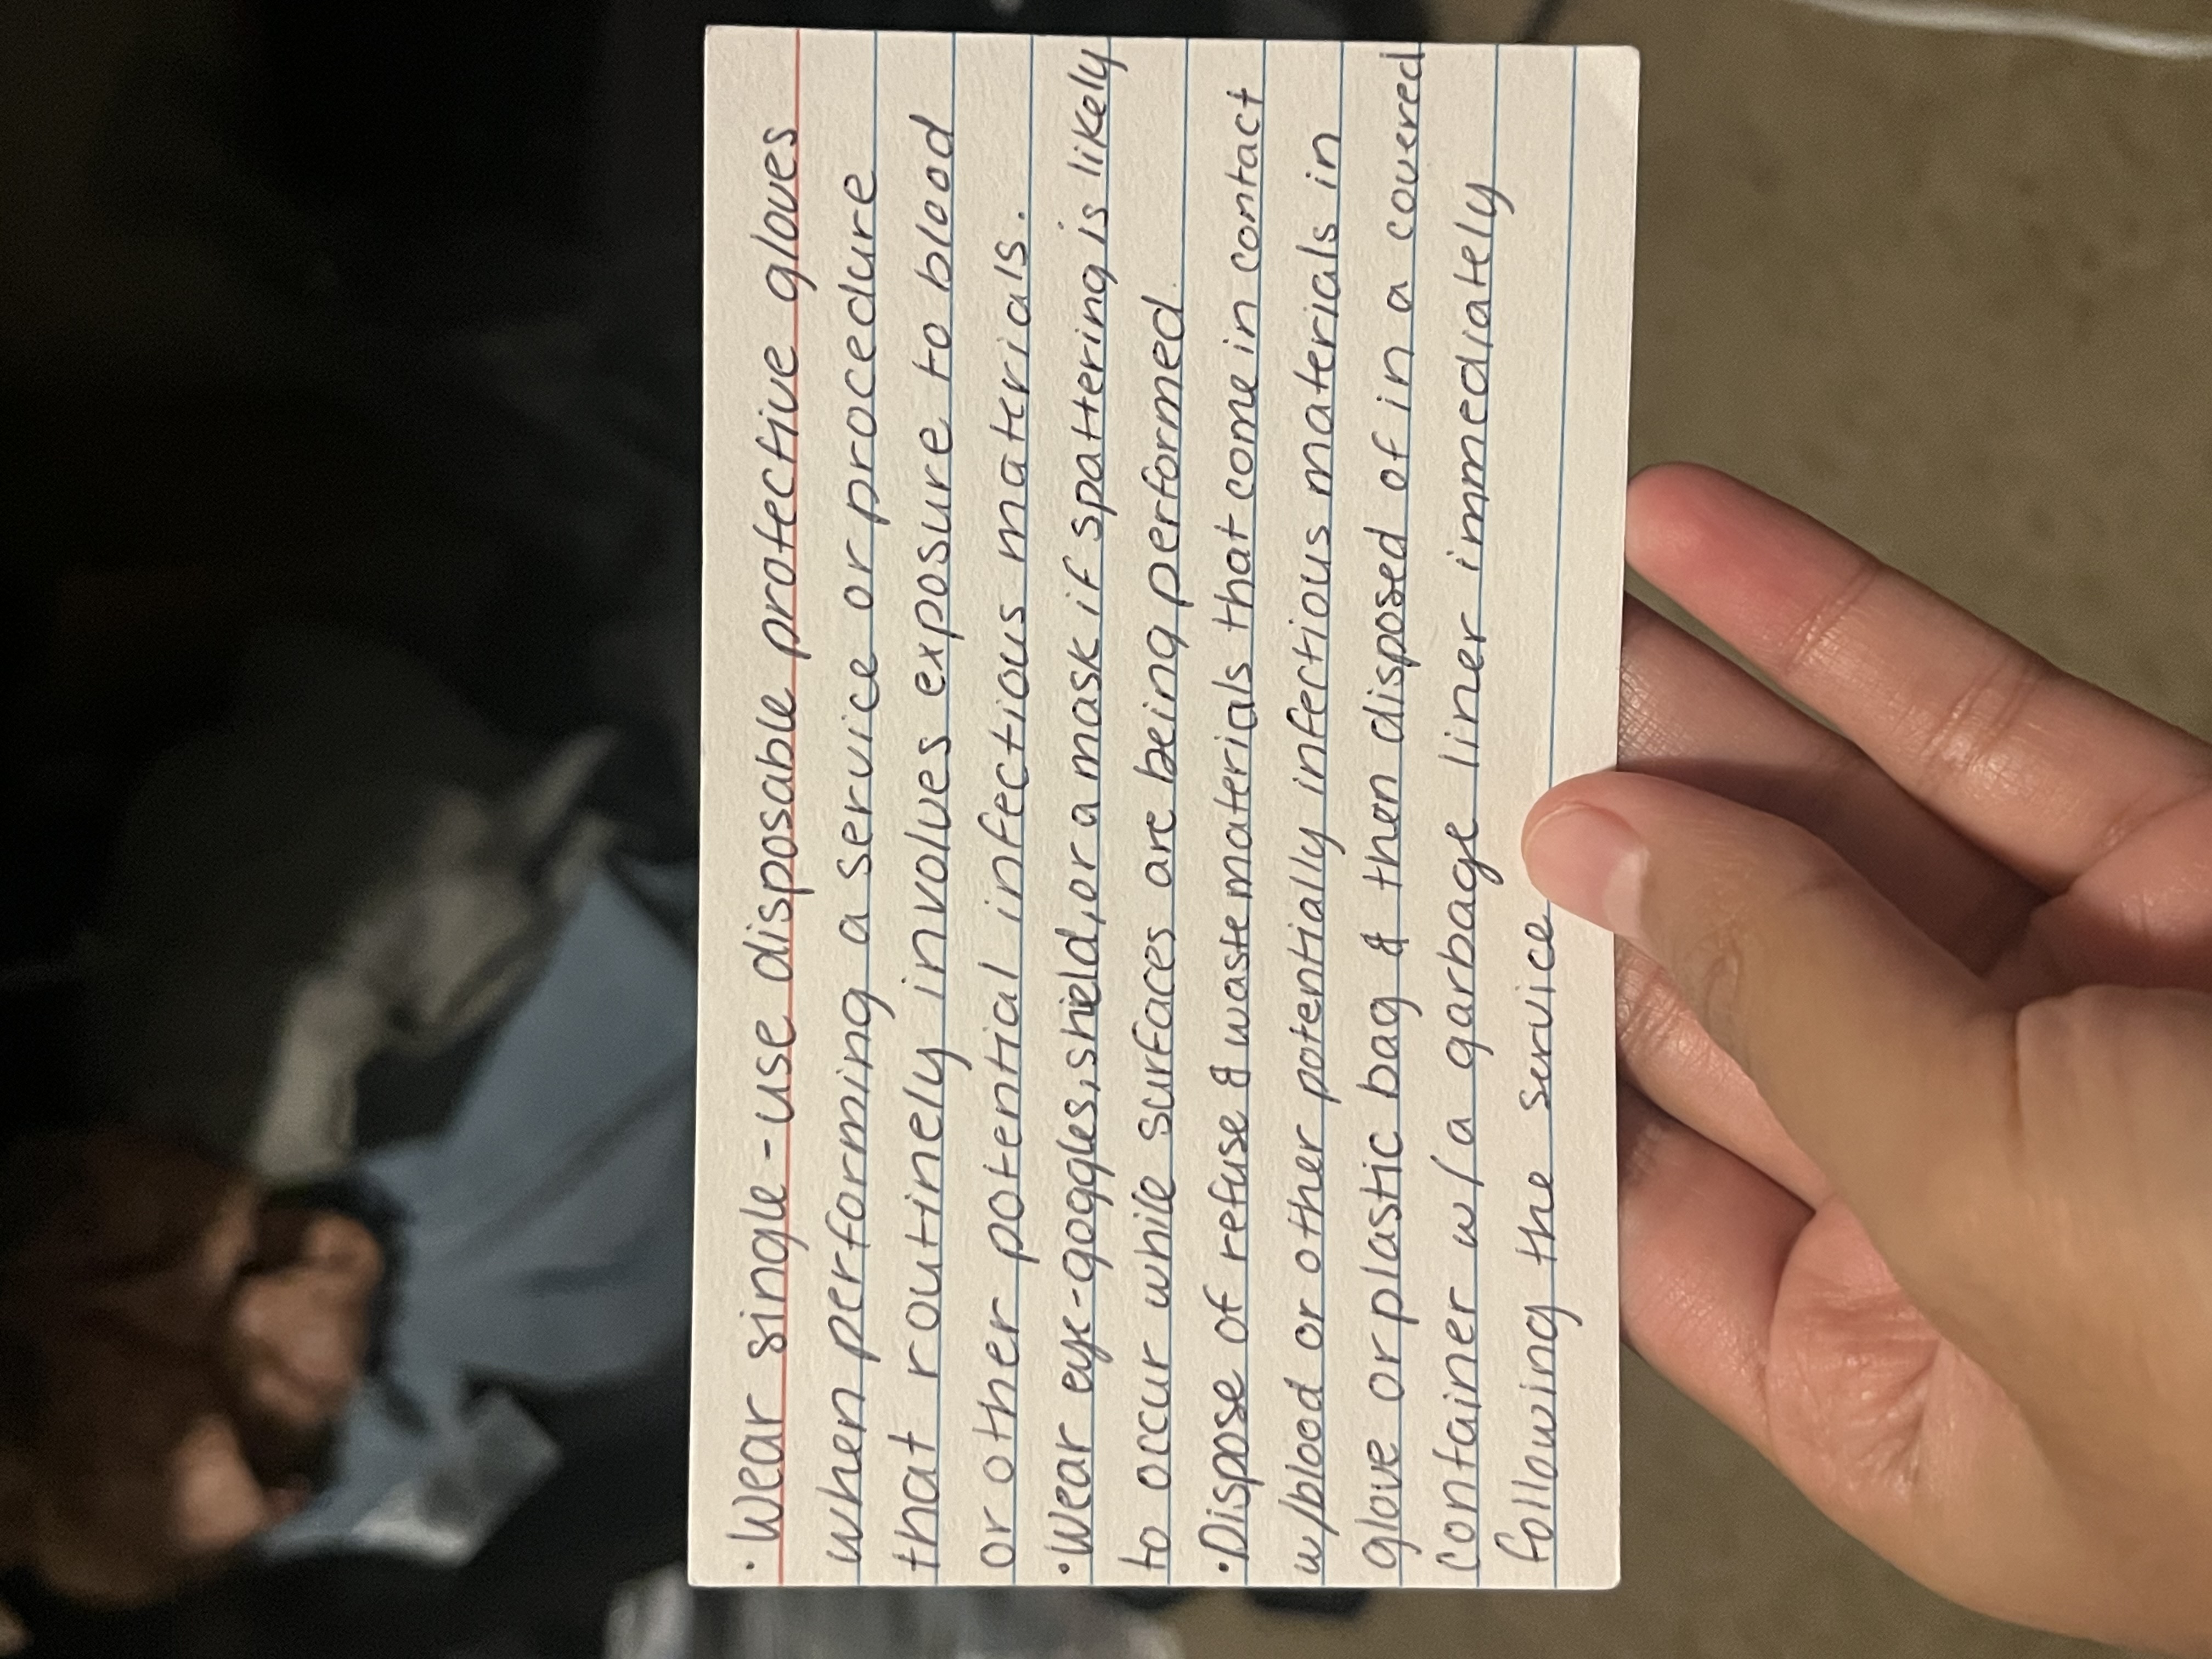 · Wear single-use disposable protective gloves
when performing a service or procedure
that routinely involves exposure to blood
or other potential infectious materials.
· Wear eye-goggles, shield, or a mask if spattering is likely
to occur while surfaces are being performed.
· Dispose of refuse & waste materials that come in contact
w/blood or other potentially infectious materials in
glove or plastic bag & then disposed of in a covered
container w/ a garbage liner immediately
following the service